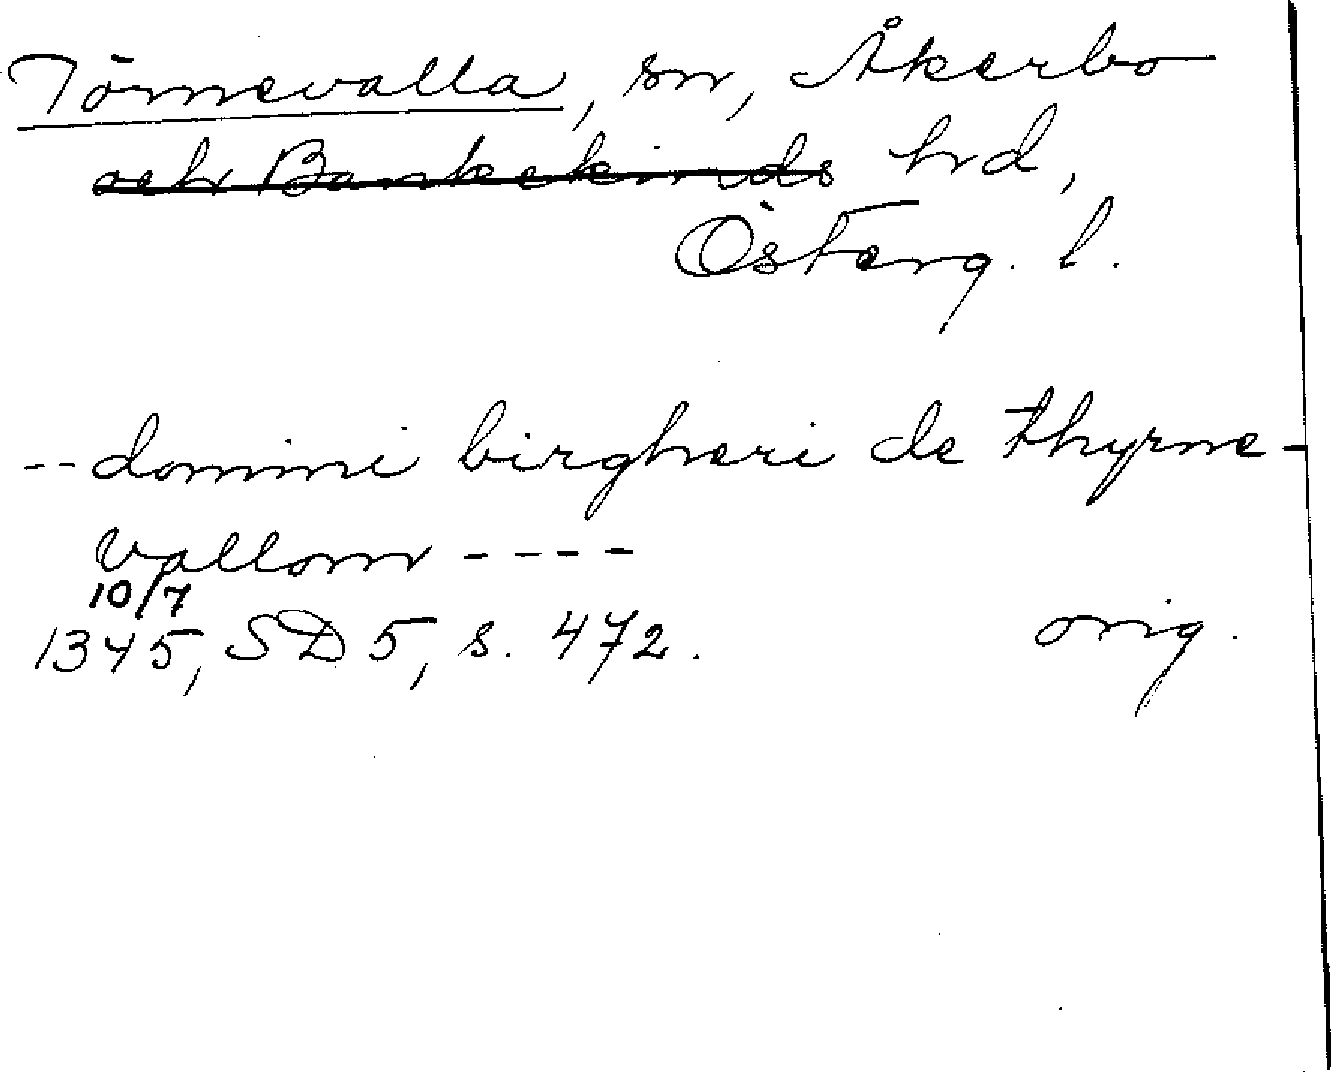 Törnevalla, sn, Åkerbo
och Bankekinds hrd,
Österg. l.
-- domini birgheri de thyrne-
vallom ----
10/7
1345, SD 5, s. 472. orig.